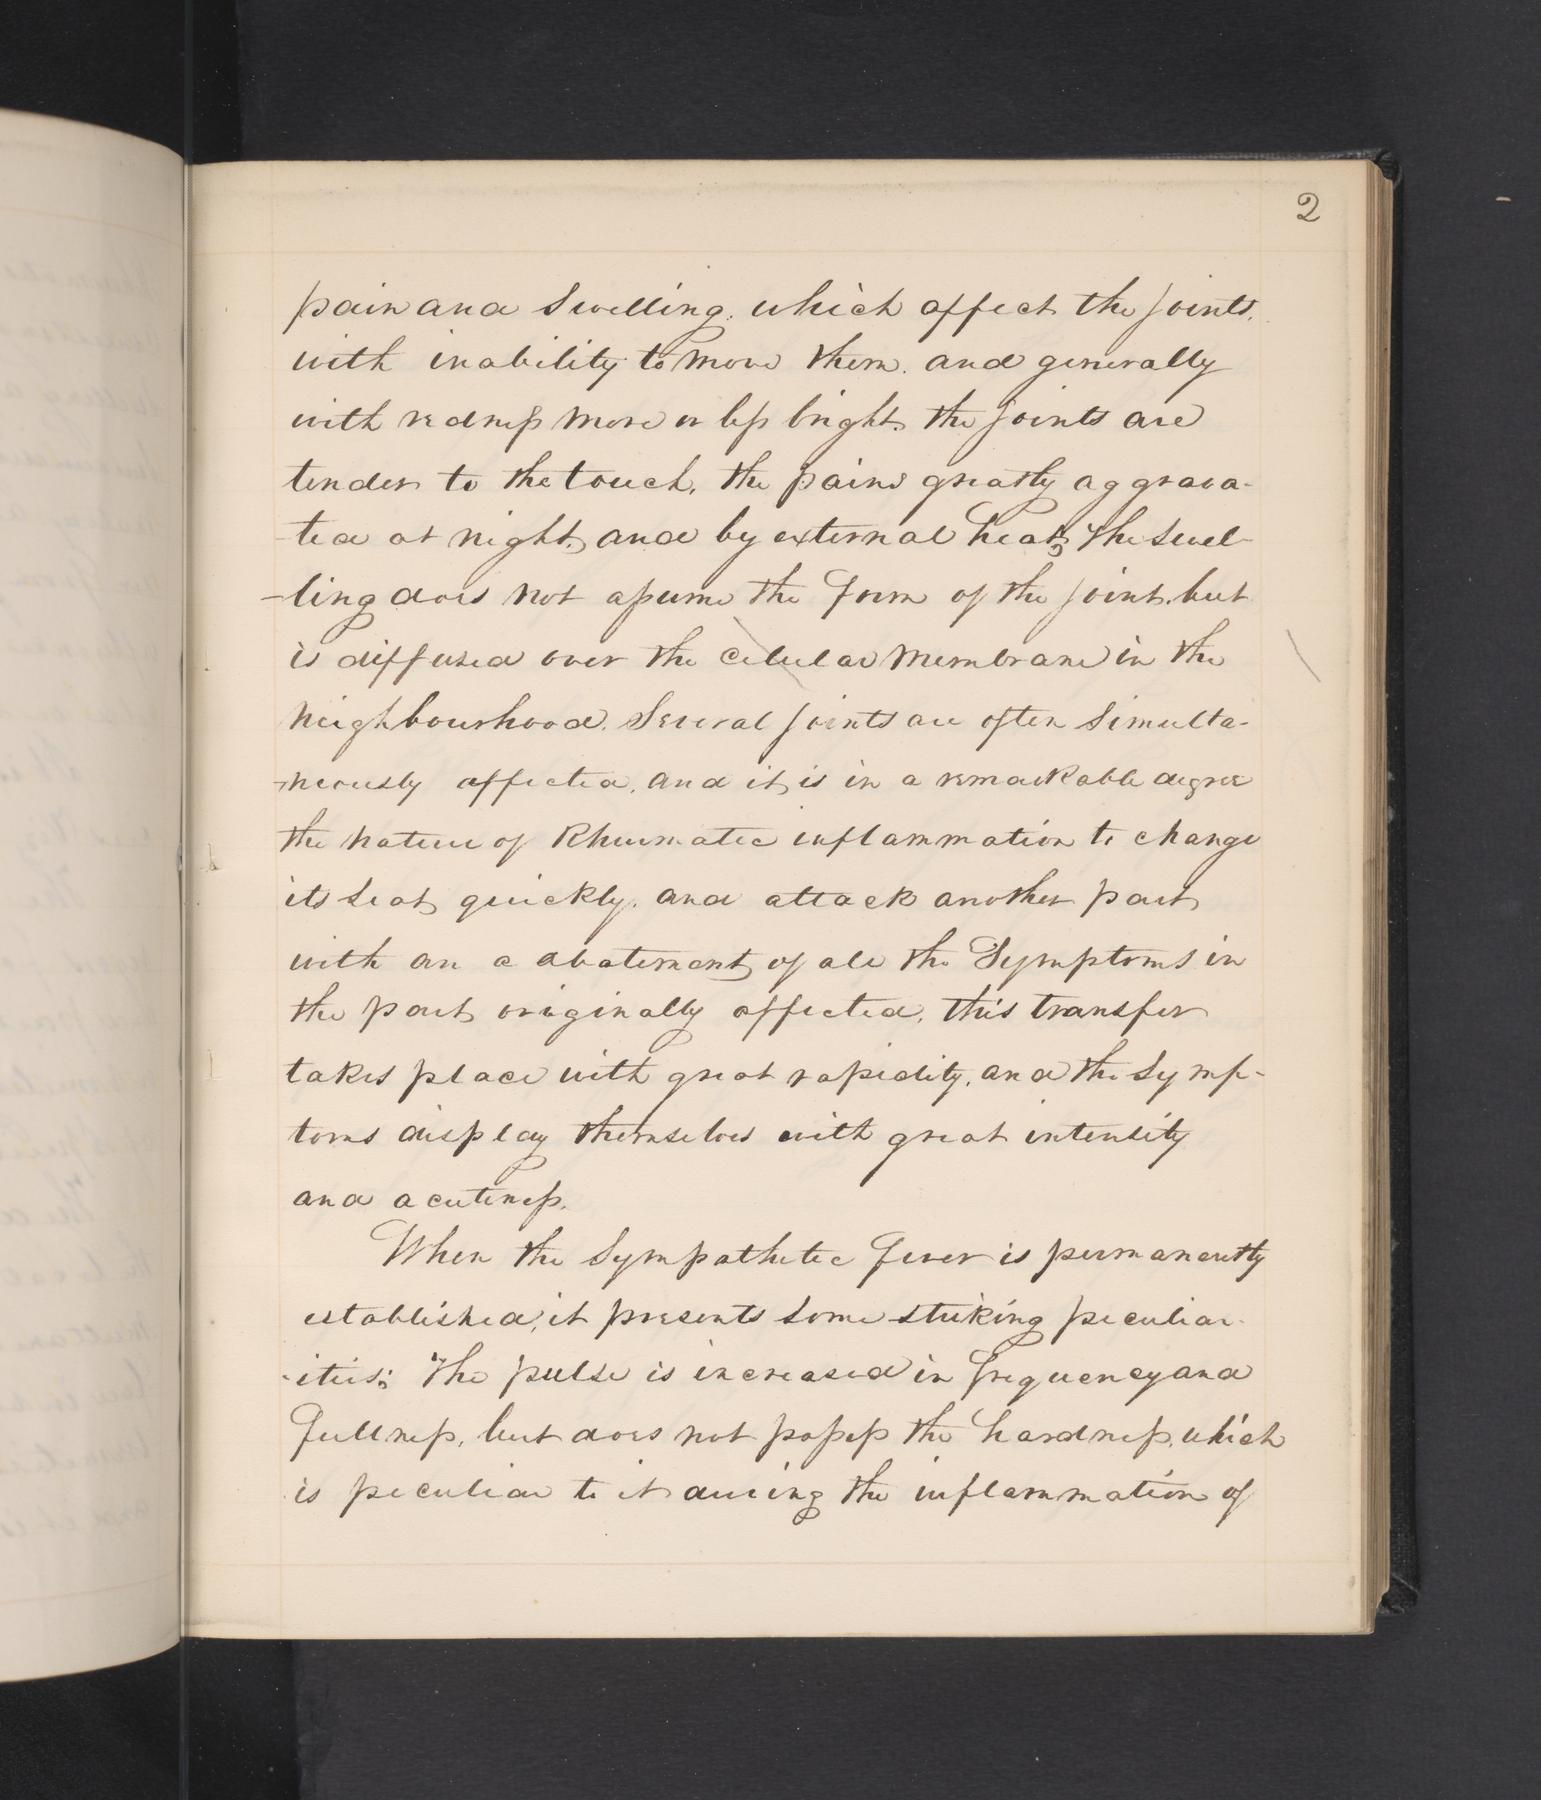 2
pain and Swelling, which affect the joints,
with inability to move them, and generally
with redness more or less bright. the joints are
tender to the touch, the pains greatly aggrava-
-ted at night, and by external heat, The Swel-
-ling does not assume the form of the joint, but
is diffused over the celular membrane in the
neighbourhood. Several joints are often Simulta-
-neously affected, and it is in a remarkable degree
the nature of Rheumatic inflammation to change
its seat quickly, and attack another part
with an a abatement of all the Symptoms in
the part originally affected, this transfer
takes place with great rapidity, and the Symp-
toms display themselves with great intensity
and acuteness.
When the Sympathetic fever is permanently
established, it presents some striking peculiar-
-ities; The pulse is increased in frequency and
fullness, but does not possess the hardness, which
is peculiar to it during the inflammation of